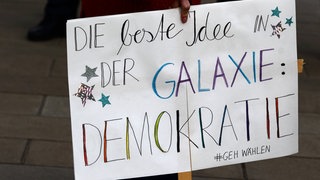 DIE beste Idee IN
DER GALAXIE:
DEMOKRATIE
#GEH WÄHLEN